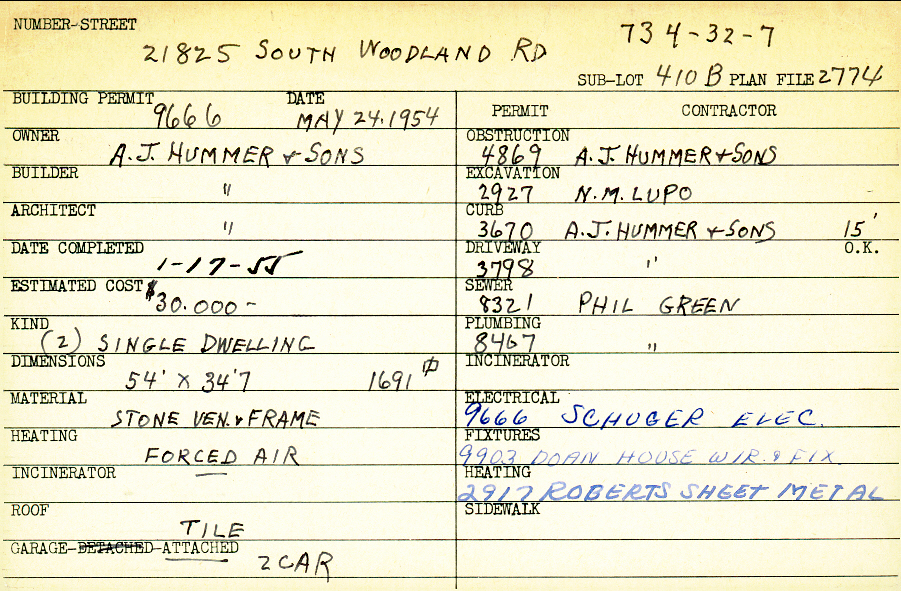 NUMBER-STREET
21825 SOUTH WOODLAND RD
734-32-7
SUB-LOT 410 B PLAN FILE 2774
BUILDING PERMIT DATE
9666 MAY 24, 1954
OWNER
A.J. HUMMER & SONS
BUILDER
"
ARCHITECT
"
DATE COMPLETED
1-17-55
ESTIMATED COST
$30.000-
KIND
(2) SINGLE DWELLING
DIMENSIONS
54' X 34'7 1691
MATERIAL
STONE VEN. & FRAME
HEATING
FORCED AIR
INCINERATOR
ROOF
TILE
GARAGE-DETACHED-ATTACHED
2 CAR
PERMIT CONTRACTOR
OBSTRUCTION
4869 A.J. HUMMER & SONS
EXCAVATION
2927 N.M. LUPO
CURB
3670 A.J. HUMMER & SONS 15'
DRIVEWAY O.K.
3798 "
SEWER
8321 PHIL GREEN
PLUMBING
8467 "
INCINERATOR
ELECTRICAL
9666 SCHUGER ELEC.
FIXTURES
9903 DOAN HOUSE WIR. & FIX.
HEATING
2917 ROBERTS SHEET METAL
SIDEWALK